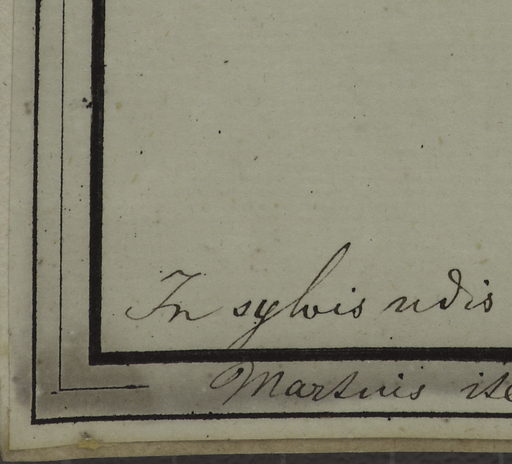 In sylvis udis
Martius ite